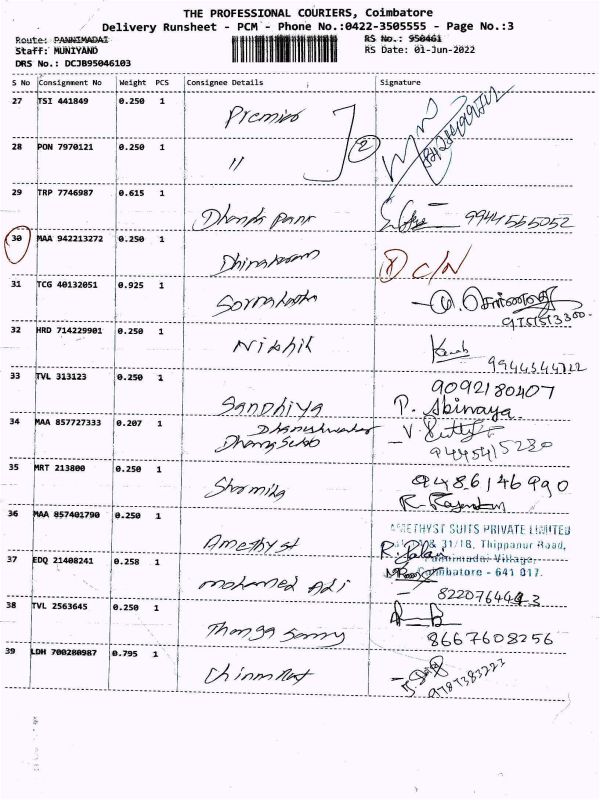 THE PROFESSIONAL COURIERS, Coimbatore
Delivery Runsheet - PCM - Phone No.:0422-3505555 - Page No.:3
Route: PANNIMADAI
RS No.: 950461
Staff: MUNIYAND
RS Date: 01-Jun-2022
DRS No.: DCJB95046103
S No Consignment No Weight PCS Consignee Details Signature
27 TSI 441849 0.250 1 Premier
28 PON 7970121 0.250 1 "
2
29 TRP 7746987 0.615 1
9944555052
30 MAA 942213272 0.250 1 Dhinakaran
C/N
31 TCG 40132051 0.925 1
32 HRD 714229901 0.250 1 Nikhil
33 TVL 313123 0.250 1 Sandhiya
9092180407
P. Abinaya.
34 MAA 857727333 0.207 1
9445415280
35 MRT 213800 0.250 1 Sharmila
9486146990
36 MAA 857401790 0.250 1 Amethyst
AMETHYST SUITS PRIVATE LIMITED
31/1B, Thippanur Road,
Pannimadai Village,
Coimbatore - 641 017.
37 EDQ 21408241 0.258 1 Mohamed Adi
38 TVL 2563645 0.250 1 Thangasamy
8667608256
39 LDH 700280987 0.795 1
9787383223